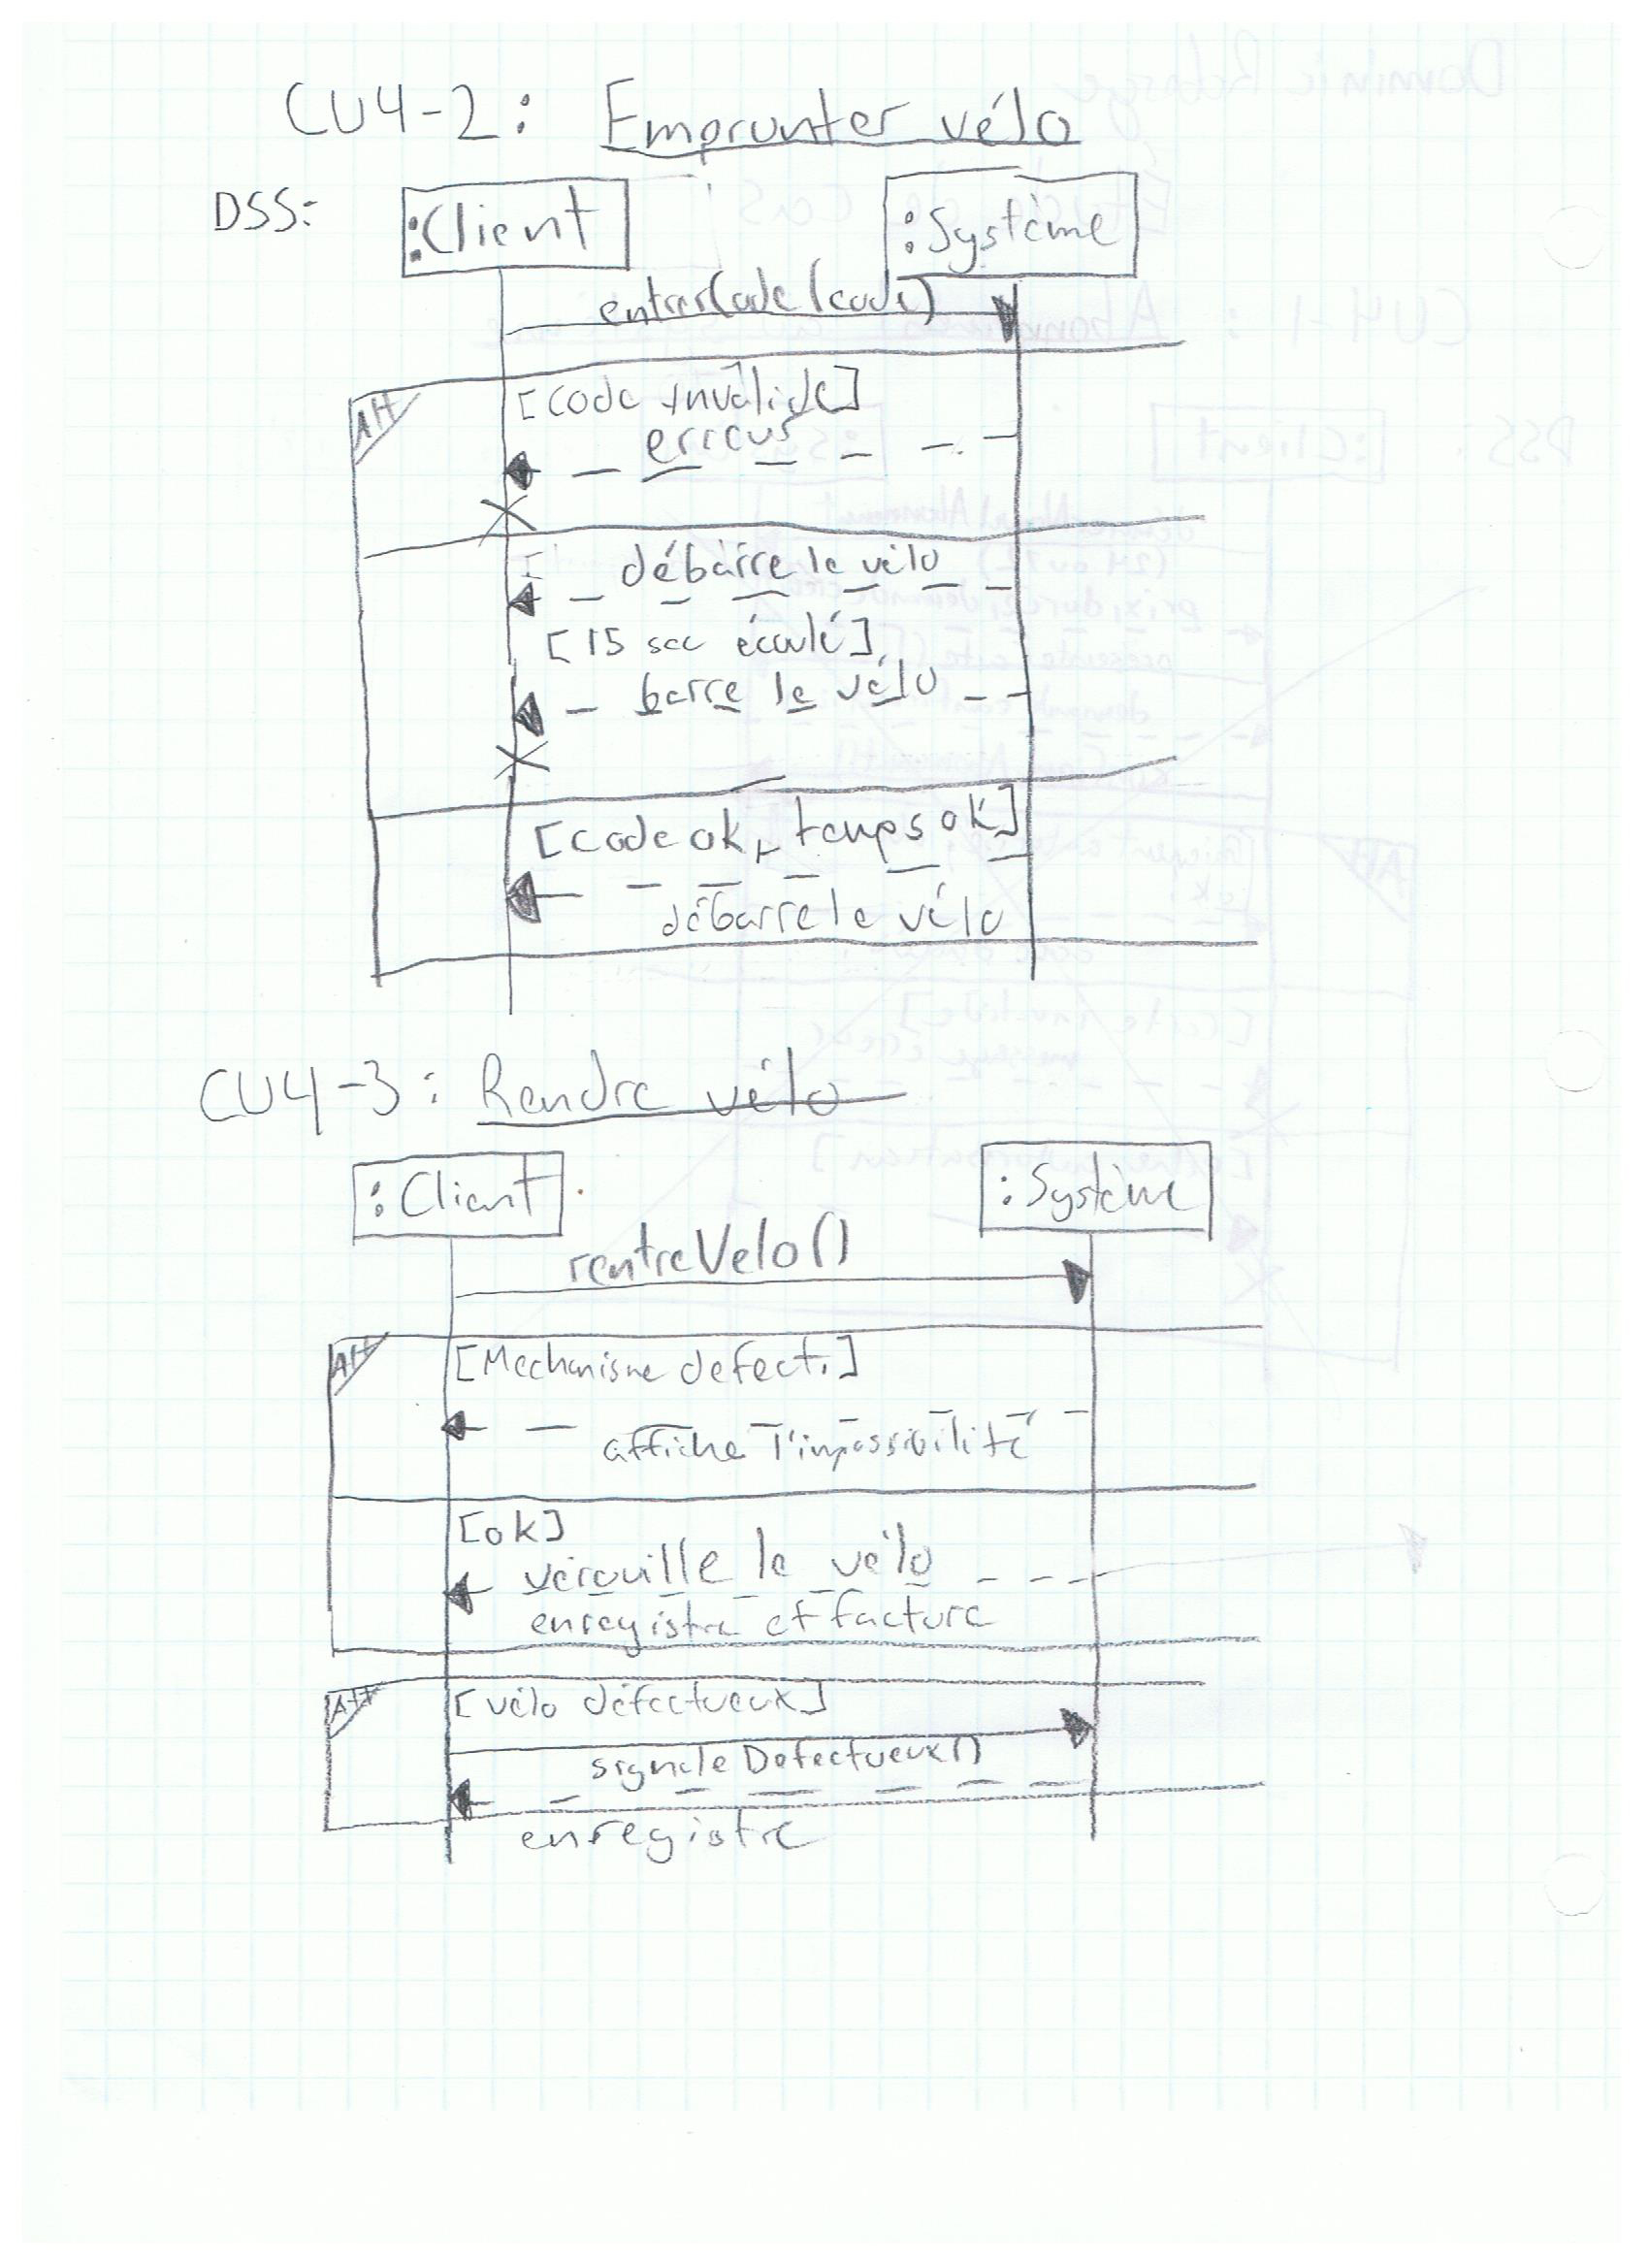 CU4-2: Emprunter vélo
DSS:
:Client
:Système
entrerCode(code)
Alt
[code invalide]
erreur
débarre le vélo
[15 sec écoulé]
barre le vélo
[code ok, temps ok]
débarre le vélo
CU4-3: Rendre vélo
:Client
:Système
rentreVelo()
Alt
[Mechanisme defect.]
affiche l'impossibilité
[ok]
verouille le vélo
enregistre et facture
Alt
[vélo défectueux]
signaleDefectueux()
enregistre